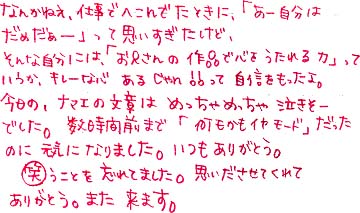 なんかねえ、仕事でへこれてたときに、「あー自分は
だめだぁー」って思いすぎたけど、
そんな自分には、「お兄さんの作品で心をうたれる力」って
いうか、キレーなバ あるじゃね 品って 自信をもったよ。
今日の、ナマエの文章は めっちゃめっちゃ 泣きそー
でした。 数時間前まで「何もかもイヤモード」だった
のに 元気に なりました。 いつもありがとう。
笑うことを 忘れてました。 思いださせてくれて
ありがとう。また 来ます。